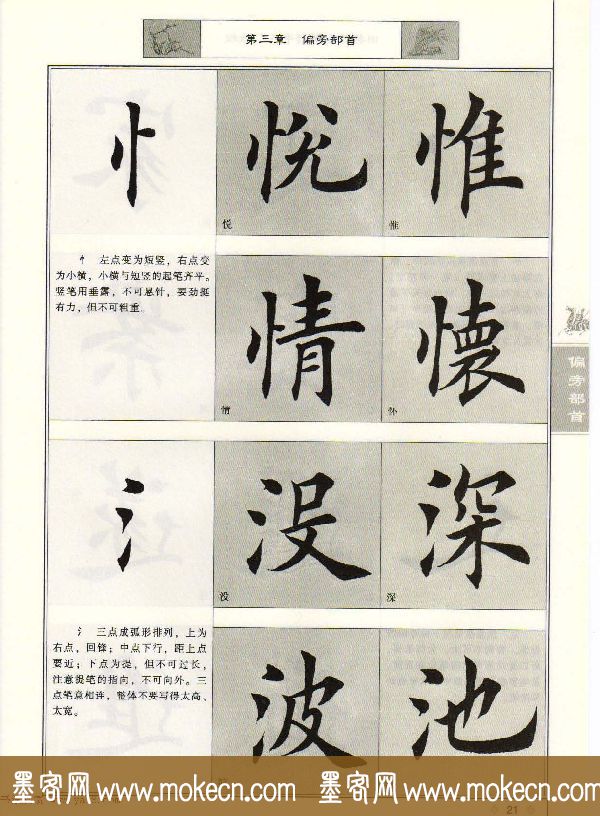 第三章 偏旁部首
忄 悦 惟
悦 惟
忄 左点变为短竖，右点变
为小横，小横与短竖的起笔齐平。
竖笔用垂露，不可悬针，要劲挺
有力，但不可粗重。
情 懷
情 怀
偏旁部首
氵 没 深
没 深
氵 三点成弧形排列，上为
右点，回锋；中点下行，距上点
要近；下点为提，但不可过长，
注意提笔的指向，不可向外。三
点笔意相连，整体不要写得太高、
太宽。
波 池
墨客网 www.mokecn.com 墨客网 www.mokecn.com
21